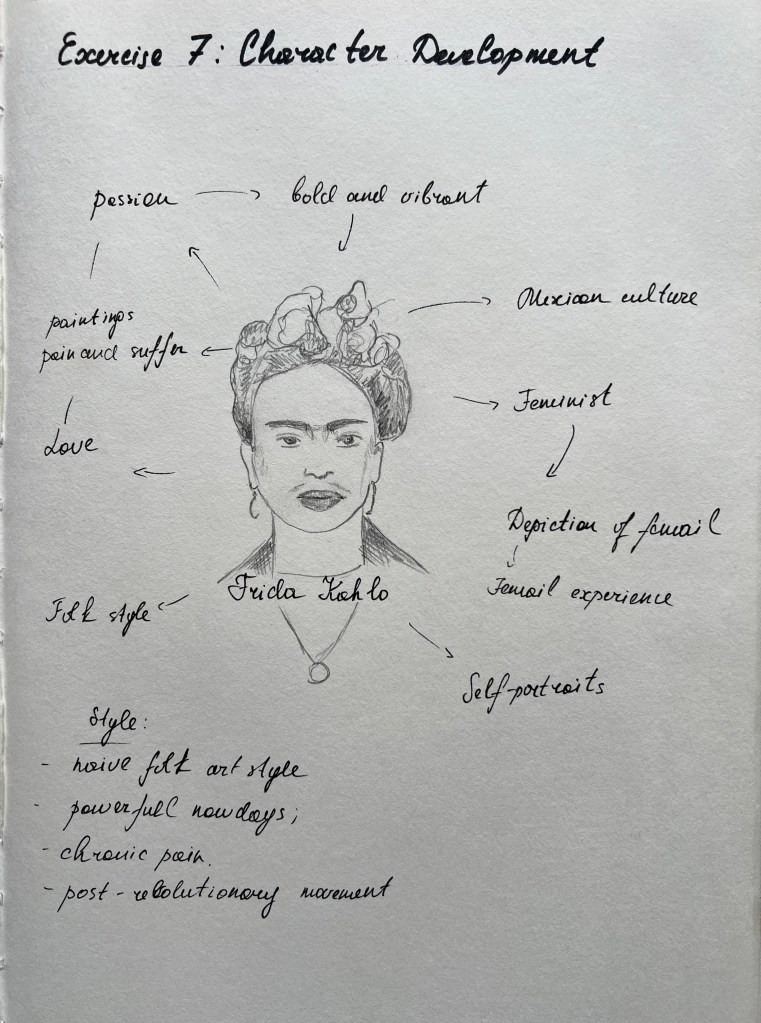 Exercise 7: Character Development
passion
bold and vibrant
Mexican culture
paintings
pain and suffer
Feminist
Love
Depiction of femail
Femail experience
Frida Kahlo
Folk style
Self-portraits
Style:
- naive folk art style
- powerfull nowdays;
- chronic pain.
- post-revolutionary movement